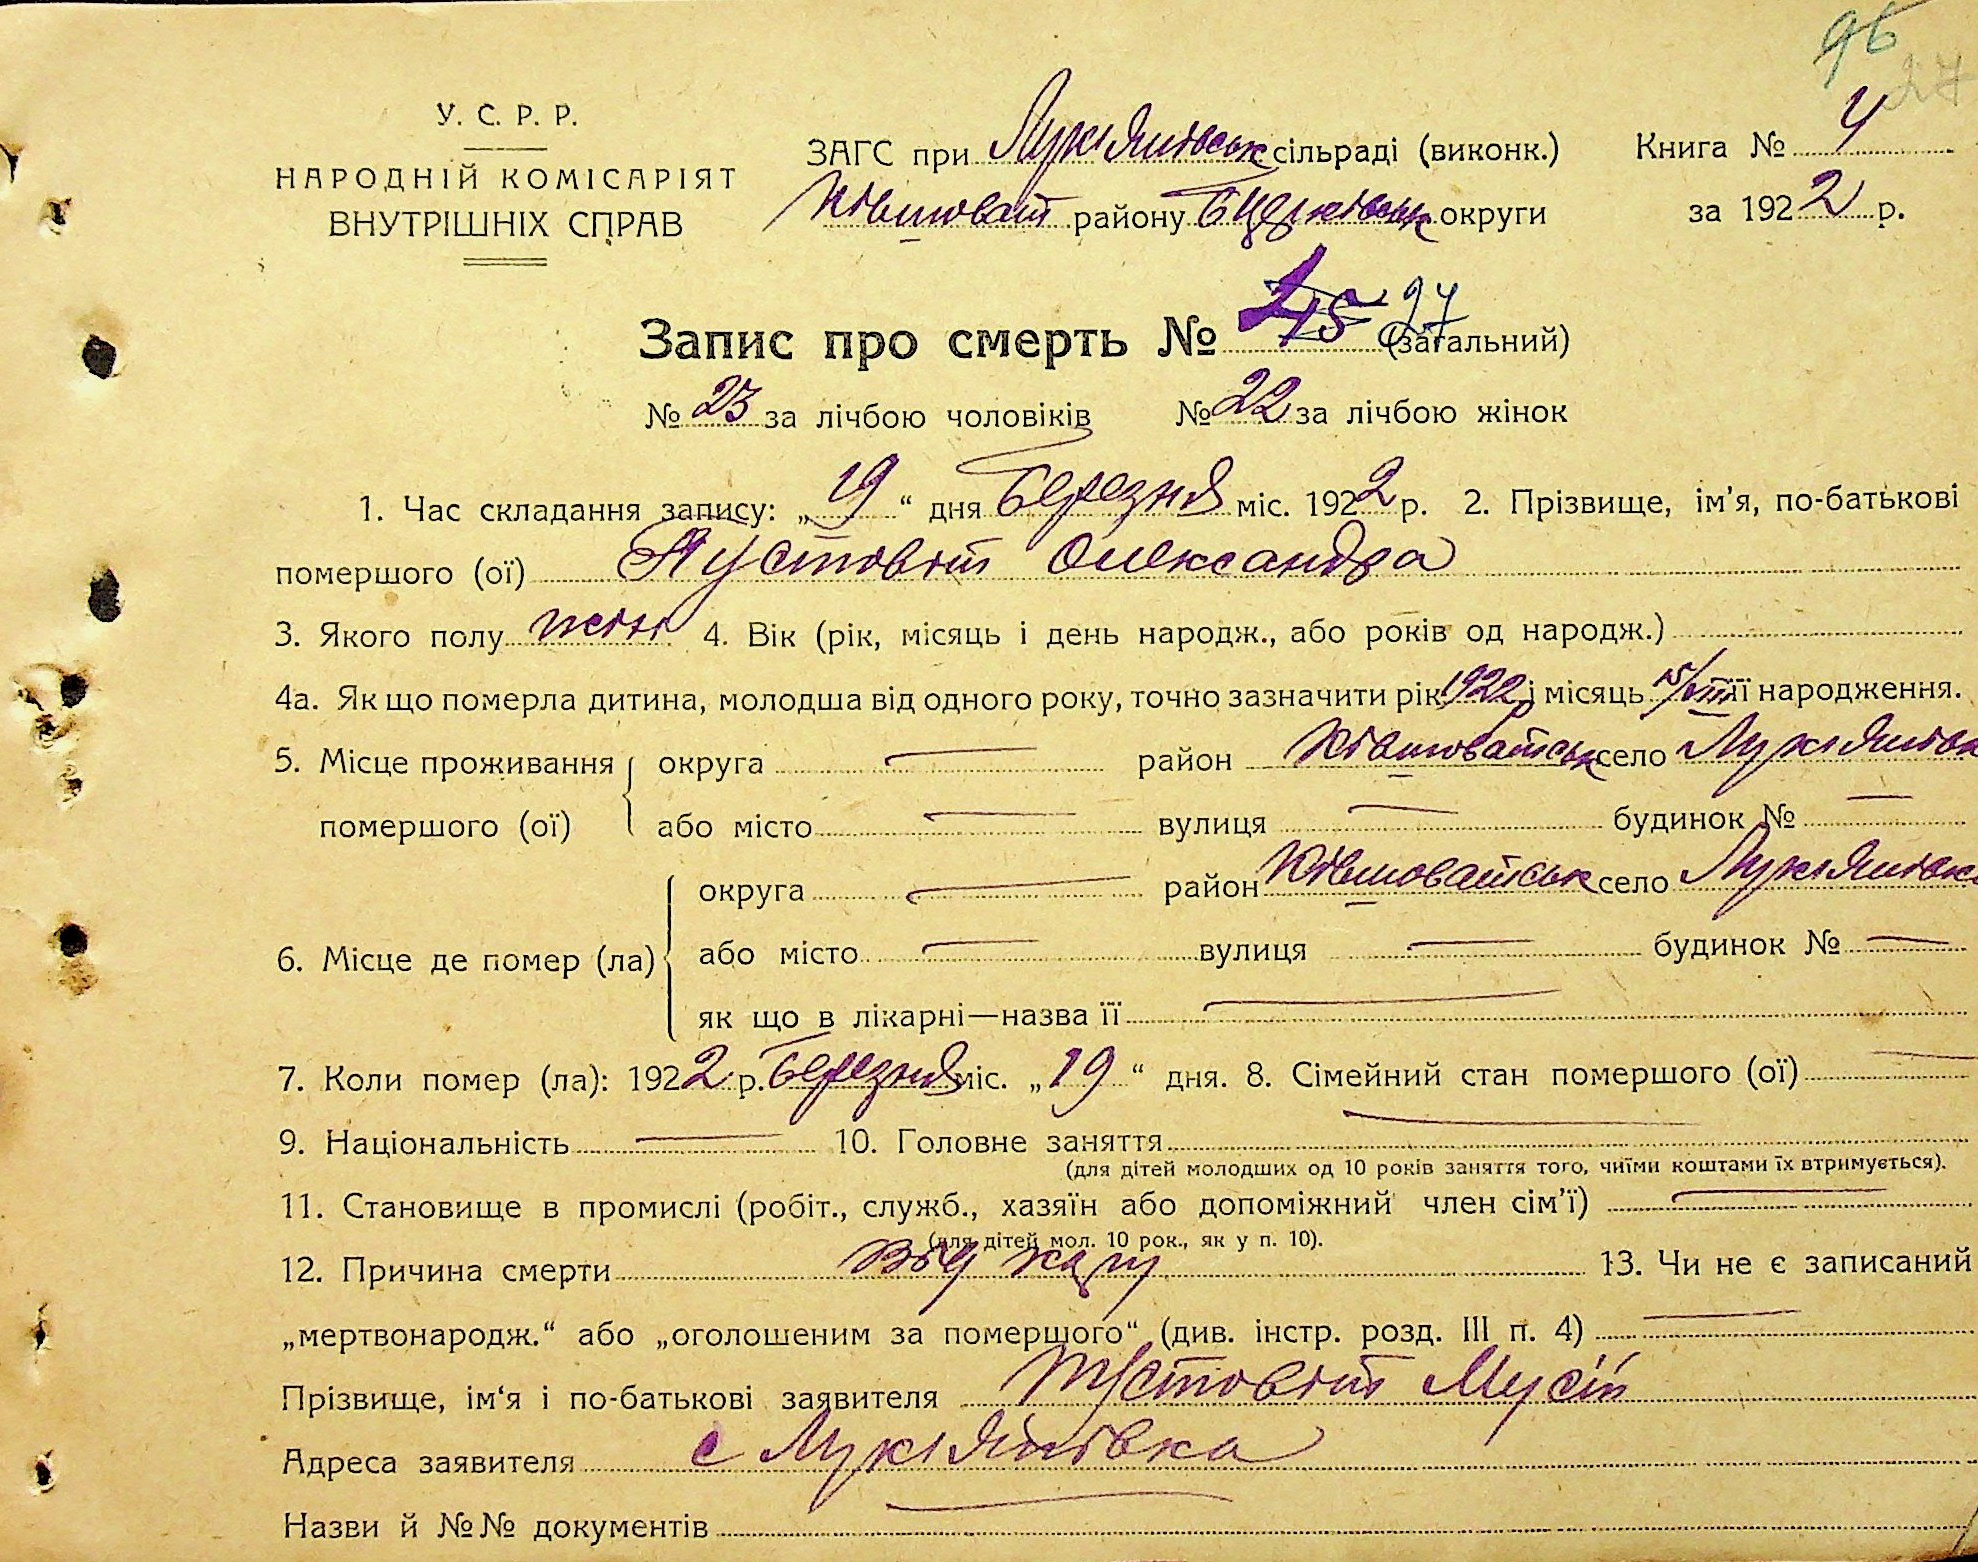 96
27
У. С. Р. Р.
НАРОДНІЙ КОМІСАРІЯТ
ВНУТРІШНІХ СПРАВ
ЗАГС при Лукіянівськ сільраді (виконк.)
Ківшоват району Бцерківськ округи
Книга № 4
за 1922 р.
Запис про смерть № 45 27 (загальний)
№ 23 за лічбою чоловіків № 22 за лічбою жінок
1. Час складання запису: „19“ дня Березня міс. 1922 р. 2. Прізвище, ім'я, по-батькові
помершого (ої) Пустовіт Олександра
3. Якого полу жіні 4. Вік (рік, місяць і день народж., або років од народж.)
4а. Як що померла дитина, молодша від одного року, точно зазначити рік 1922р і місяць її народження.
5. Місце проживання помершого (ої) округа — район Ківшоватськ село Лукіянівк
або місто — вулиця — будинок № —
6. Місце де помер (ла) округа — район Ківшоватськ село Лукіянівка
або місто — вулиця — будинок № —
як що в лікарні—назва її —
7. Коли помер (ла): 1922 р. Березня міс. „19“ дня. 8. Сімейний стан помершого (ої) —
9. Національність — 10. Головне заняття —
(для дітей молодших од 10 років заняття того, чиїми коштами їх втримується).
11. Становище в промислі (робіт., служб., хазяїн або допоміжний член сім'ї) —
(для дітей мол. 10 рок., як у п. 10).
12. Причина смерти Від 13. Чи не є записаний
„мертвонародж.“ або „оголошеним за помершого“ (див. інстр. розд. III п. 4) —
Прізвище, ім'я і по-батькові заявителя Пустовіт Мусій
Адреса заявителя с Лукіянівка
Назви й №№ документів —